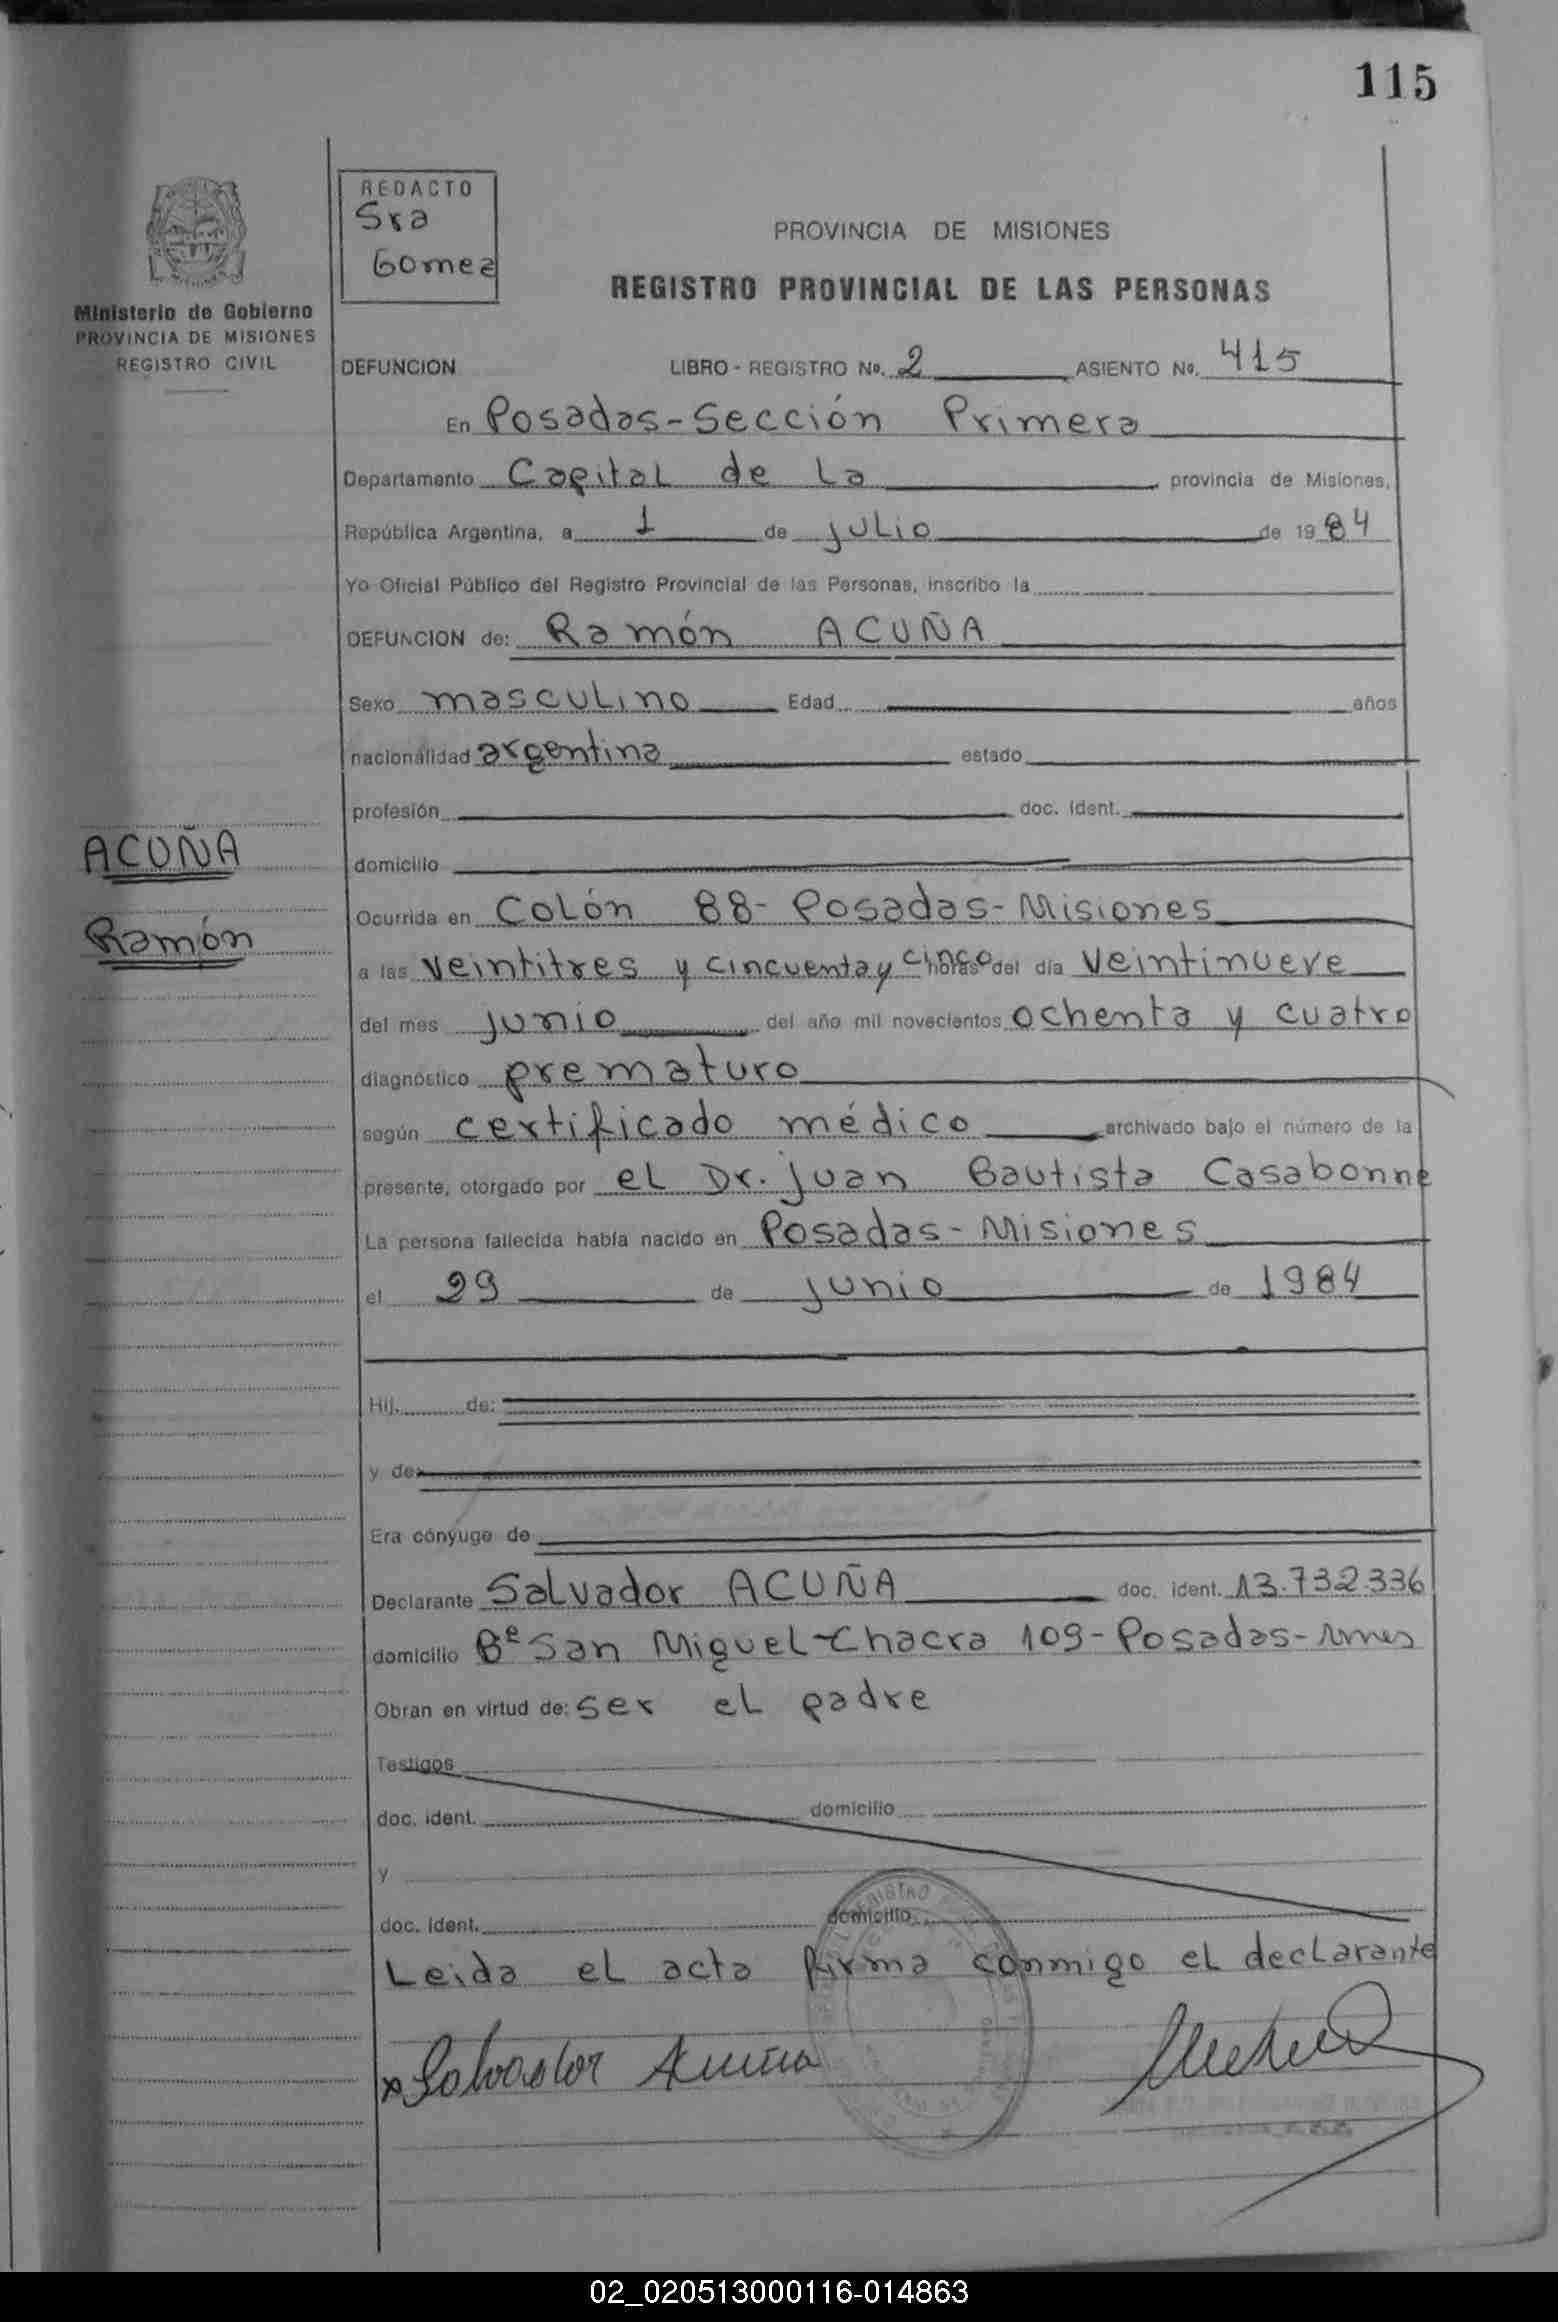 115
REDACTO
Sra
Gomez
Ministerio de Gobierno
PROVINCIA DE MISIONES
REGISTRO CIVIL
PROVINCIA DE MISIONES
REGISTRO PROVINCIAL DE LAS PERSONAS
DEFUNCION LIBRO - REGISTRO No. 2 ASIENTO No. 415
En Posadas-Sección Primera
Departamento Capital de La provincia de Misiones,
República Argentina, a 1 de julio de 1984
Yo Oficial Público del Registro Provincial de las Personas, inscribo la
DEFUNCION de: Ramón ACUÑA
Sexo masculino Edad años
nacionalidad argentina estado
profesión doc. ident.
ACUÑA
Ramón
domicilio
Ocurrida en Colón 88- Posadas-Misiones
a las veintitres y cincuenta y cinco horas del día veintinueve
del mes junio del año mil novecientos ochenta y cuatro
diagnóstico prematuro
según certificado médico archivado bajo el número de la
presente, otorgado por el Dr. Juan Bautista Casabonne
La persona fallecida había nacido en Posadas-Misiones
el 29 de junio de 1984
Hij. de:
y de:
Era cónyuge de
Declarante Salvador ACUÑA doc. ident. 13.732.336
domicilio Bº San Miguel-Chacra 109-Posadas-Mnes
Obran en virtud de: ser el padre
Testigos
doc. ident. domicilio
y
doc. ident. domicilio
Leida el acta firma conmigo el declarante
Salvador Acuña
02_020513000116-014863